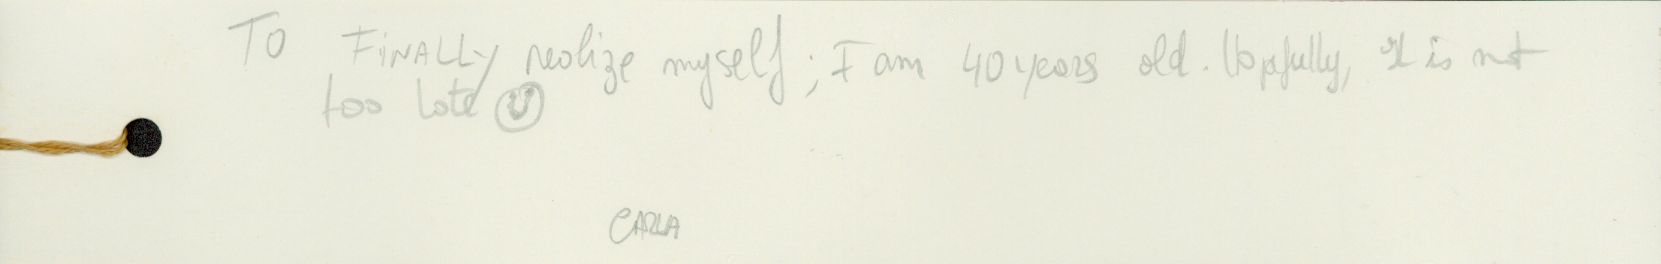 To FINALLY realize myself; I am 40 years old. Hopefully, it is not
too late ☺
CARLA